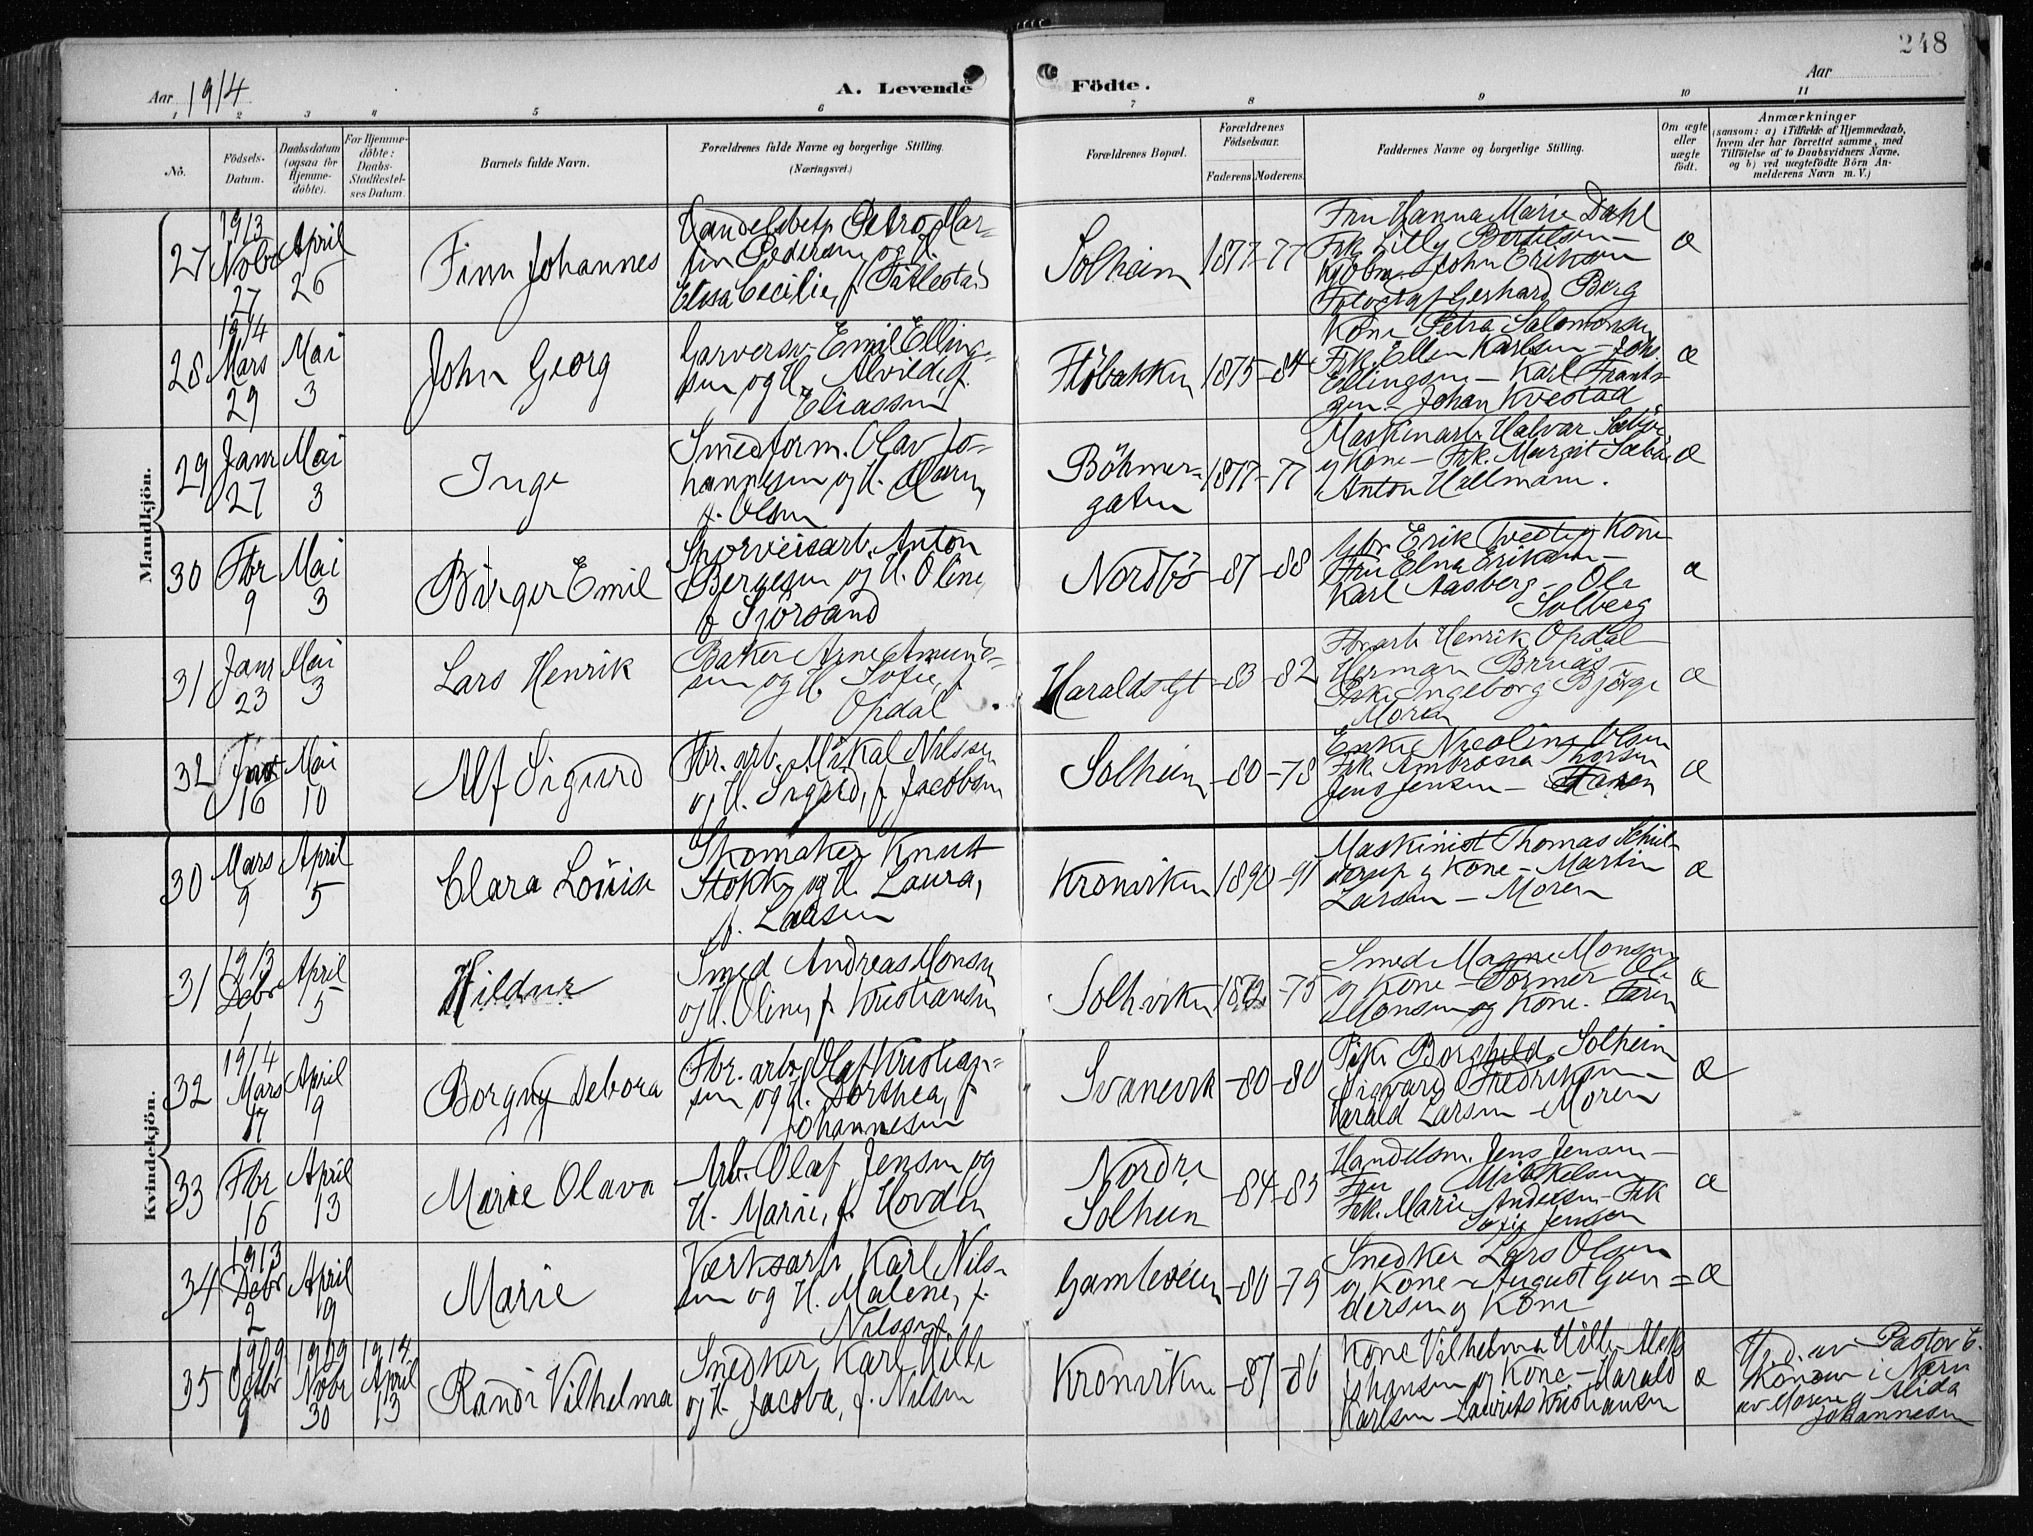 248
Aar 1914
A. Levende
Födte.
Aar
1 2 3 4 5 6 7 8 9 10 11
No.
Födsels-
Datum.
Daabsdatum
(ogsaa for
Hjemme-
döbte).
For Hjemme-
döbte:
Daabs-
Stadfæstel-
ses Datum.
Barnets fulde Navn.
Forældrenes fulde Navne og borgerlige Stilling.
(Næringsvei.)
Forældrenes Bopæl.
Forældrenes
Födselsaar.
Faderens. Moderens.
Faddernes Navne og borgerlige Stilling.
Om ægte
eller
uægte
födt.
Anmærkninger
(saasom: a) i Tilfælde af Hjemmedaab,
hvem der har forrettet samme, med
Tilföielse af to Daabsvidners Navne,
og b) ved uægtefödte Börn An-
melderens Navn m. V.)
Mandkjön.
27
1913
Nobr
27
April
26
Finn Johannes
Handelsbetj. Petro Mar-
tin Pedersen og H.
Elisa Cecilie, f.
Solheim
1877 -77
Fru Hanna Marie Dahl
Frk. Lilly Bertelsen -
John Erikson
Fotograf Gerhard Berg
æ
28
1914
Mars
29
Mai
3
John Georg
Garversv. Emil Elling-
sen og H. Alvilde, f.
Eliassen
Flöbakken
1875 -84
Kone Petra Salomonsen
Frk. Ellen Karlsen - Joh.
Ellingsen - Karl Frant-
zen - Johan Kvestad
æ
29
Janr
27
Mai
3
Inge
Smedform. Olav Jo-
hannesen og H. Karen,
f. Olsen
Böhmer-
gaten
1877 -77
Maskinarb. Halvar Sæbö
og Kone - Frk. Margit Sæbö
Anton Hallmann.
æ
30
Fbr
9
Mai
3
Birger Emil
Sporveisarb. Anton
Bergesen og H. Oline,
f. Sjörsand
Nordbö
-87 -88
Erik Tvedt og Kone
Fru Elna Eriksen -
Karl Aasberg - Ole
Solberg
æ
31
Janr
23
Mai
3
Lars Henrik
Baker Arne Amund-
sen og H. Sofie, f.
Opdal
Haraldsgt
-83 -82
Fbrarb Henrik Opdal
Herman Bruås -
Frk. Ingeborg Bjørge
Moren
æ
32
16
Mai
10
Alf Sigurd
Fbr. arb. Mikal Nilssen
og H. Sigrid, f. Jacobsen
Solheim
-80 -78
Enke Nicoline Olsen
Frk. Ambrosia Thorsen
Jens Jensen - Faren
æ
Kvindekjön.
30
Mars
9
April
5
Clara Louise
Skomaker Knut
Stokke og H. Laura,
f. Larsen
Kronviken
1890 -91
Maskinist Thomas Schiel-
derup og Kone - Martin
Larsen - Moren
æ
31
1913
Debr
1
April
5
Hildur
Smed Andreas Monsen
og H. Oline, f. Kristiansen
Solhviken
1872 -75
Smed Magne Monsen
og Kone - Former Ole
Monsen og Kone. Faren
æ
32
1914
Mars
17
April
9
Borgny Debora
Fbr. arb. Olaf Kristian-
sen og H. Dorthea, f.
Johannesen
Svanevik
-80 -80
Pike Borghild Solheim
Sigvard Fredriksen -
Harald Larsen - Moren
æ
33
Fbr
16
April
13
Marie Olava
Arb. Olaf Jensen og
H. Marie, f. Hovden
Nordre
Solheim
-84 -83
Handelsm. Jens Jensen -
Fru Mikkelsen
Frk. Marie Andersen - Frk
Sofie Jensen
æ
34
1913
Debr
2
April
19
Marie
Værksarb. Karl Nils-
sen og H. Malene, f.
Nilssen
Gamleveien
-80 -79
Snedker Lars Olsen
og Kone - August Gun-
dersen og Kone
æ
35
1909
Octbr
9
1909
Nobr
30
1914
April
13
Randi Vilhelma
Snedker Karl Hille
og H. Jacoba, f. Nilsen
Kronviken
-87 -86
Kone Vilhelma Hille Aleks
Johansen og Kone - Harald
Karlsen - Laurits Kristiansen
æ
H. d. av Pastor C.
i Nærv
av Moren og Alida
Johannesen